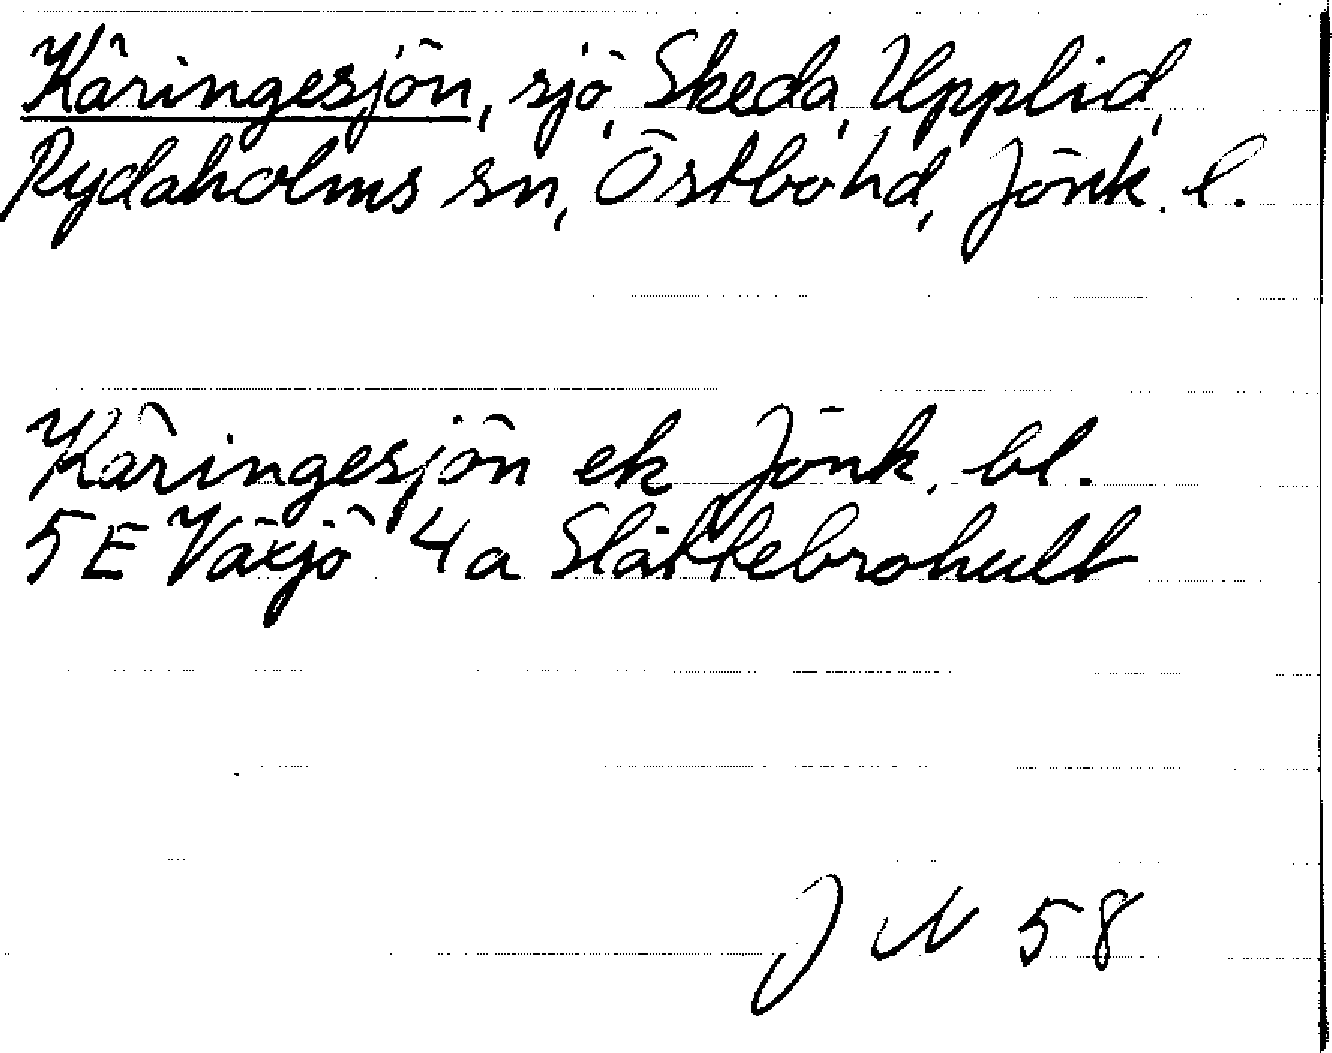 Käringesjön, sjö, Skeda, Upplid,
Rydaholms sn, Östbo hd, Jönk. l.
Käringesjön ek Jönk. bl.
5E Växjö 4a Släthebrohult
J N 58